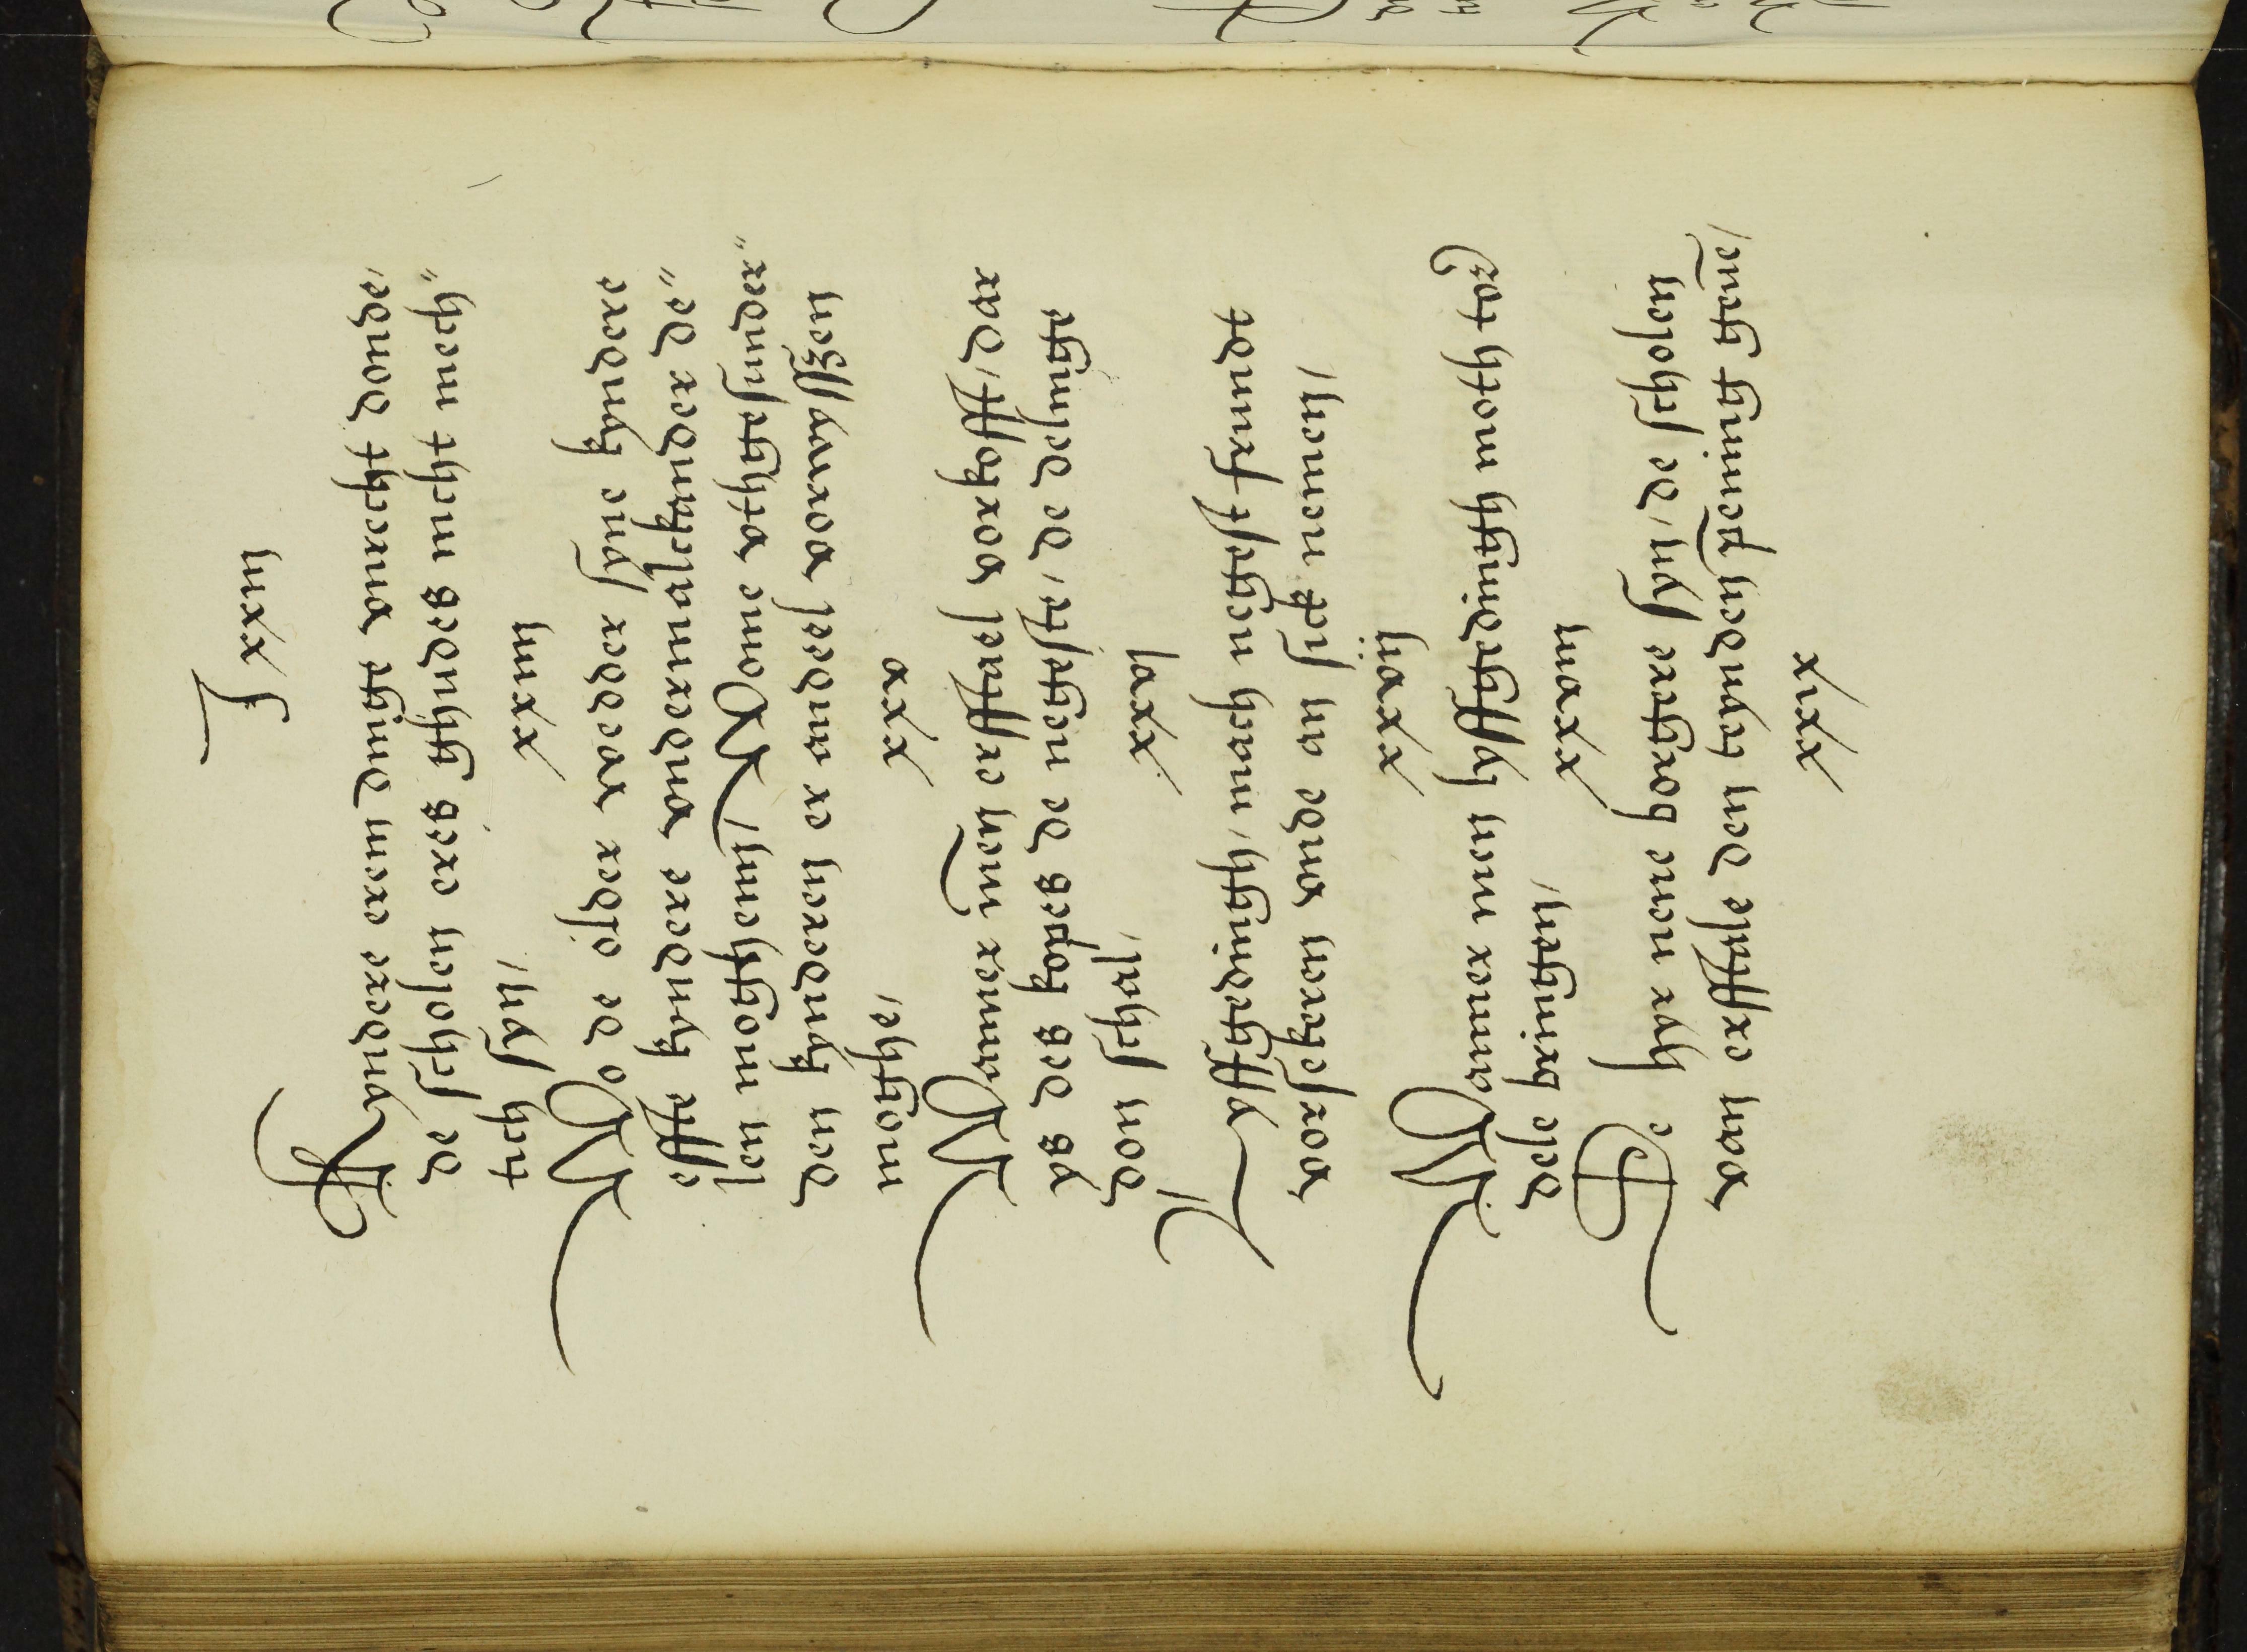 xxiii
Kyndere erem dinge vnrecht donde,
de scholen eres gyndes nicht mech„
tich syn,
xxiiii
Wo de older vedder syne kyndere
effte kyndere vnderualekynder de„
len moghen, Wone athgesunder„
den kynderen er andeel vorwyssen
moghe,
xxv
Wanner men erffrael vorkofft, dar
ys des kopes de negeste, de delinge
don schal,
xxvi
Lyffgedingh, mach neyn gest frundt
vorsekeren vnde an sick nemen,
xxvii
Wanner men lyffgedingh moth tor
dele bringen,
xxviii
De hyr nene borgere syn, de scholen
von erffdele den teynden penningk geue,
xxix